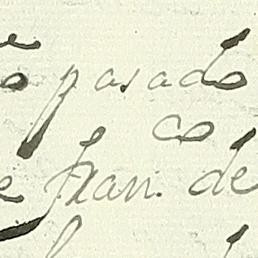 pasado
co
Fran. de